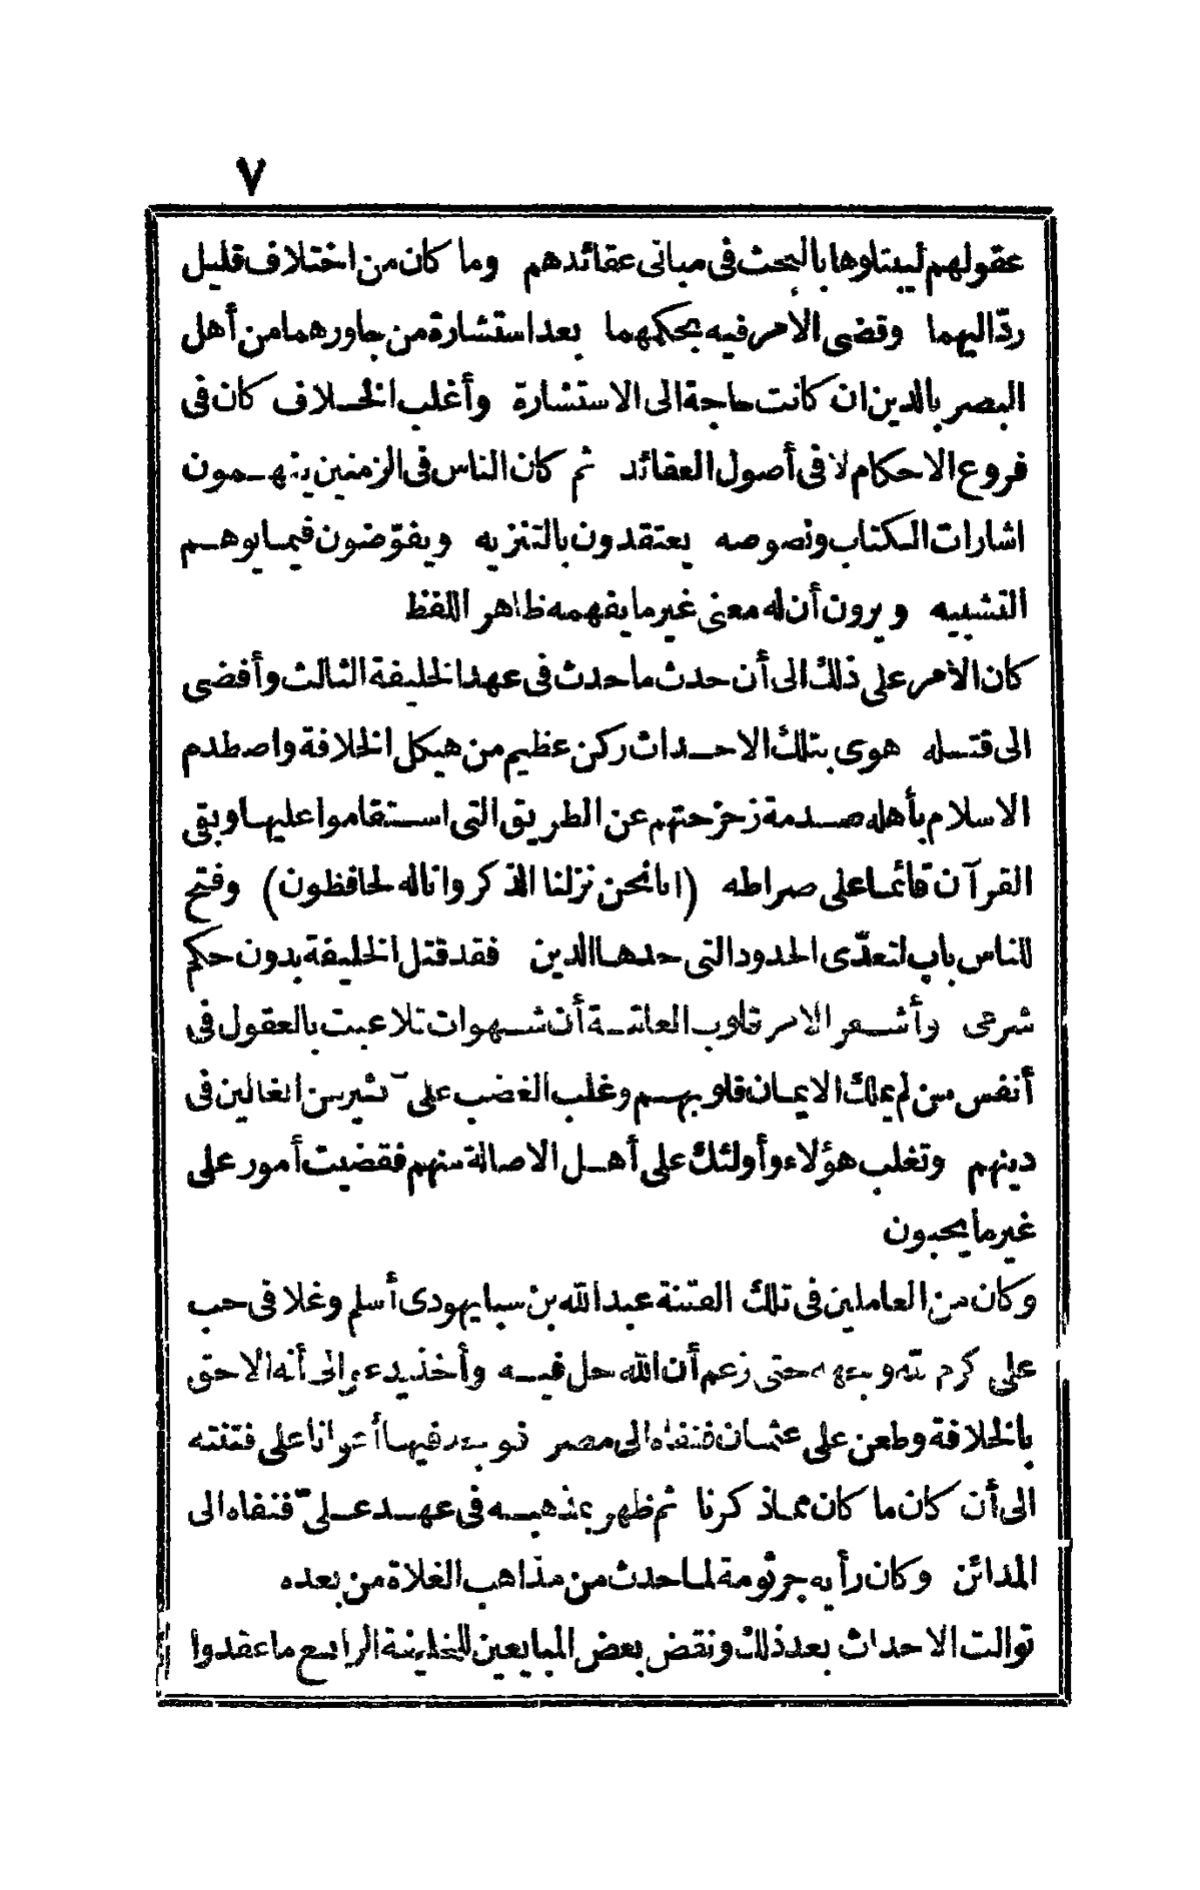 ٧
عقولهم ليبتلوها بالبحث فى مبانى عقائدهم وما كان من اختلاف قليل
ردّ اليهما وقضى الأمر فيه بحكمهما بعد استشارة من جاورهما من أهل
البصر بالدين ان كانت حاجة الى الاستشارة وأغلب الخلاف كان فى
فروع الاحكام لا فى أصول العقائد ثم كان الناس فى الزمنين يفهمون
اشارات الكتاب ونصوصه يعتقدون بالتنزيه ويفوّضون فيما يوهم
التشبيه ويرون أن له معنى غير ما يفهمه ظاهر اللفظ
كان الأمر على ذلك الى أن حدث ما حدث فى عهد الخليفة الثالث وأفضى
الى قتله هوى بتلك الاحداث ركن عظيم من هيكل الخلافة واصطدم
الاسلام بأهله صدمة زحزحتهم عن الطريق التى استقاموا عليها وبقى
القرآن قائما على صراطه (انا نحن نزلنا الذكر وانا له لحافظون) وفتح
للناس باب لتعدّى الحدود التى حدها الدين فقد قتل الخليفة بدون حكم
شرعى وأشعر الامر قلوب العامّة أن شهوات تلاعبت بالعقول فى
أنفس من لم يملك الايمان قلوبهم وغلب الغضب على كثير من الغالين فى
دينهم وتغلب هؤلاء وأولئك على أهل الاصالة منهم فقضيت أمور على
غير ما يحبون
وكان من العاملين فى تلك الفتنة عبد الله بن سبا يهودى أسلم وغلا فى حب
على كرم الله وجهه حتى زعم أن الله حل فيه وأخذ يدعو الى أنه الاحق
بالخلافة وطعن على عثمان فنفاه الى مصر فوجد فيها أعوانا على فتنته
الى أن كان ما كان مما ذكرنا ثم ظهر بمذهبه فى عهد علىّ فنفاه الى
المدائن وكان رأيه جرثومة لما حدث من مذاهب الغلاة من بعده
توالت الاحداث بعد ذلك ونقض بعض المبايعين للخليفة الرابع ما عقدوا